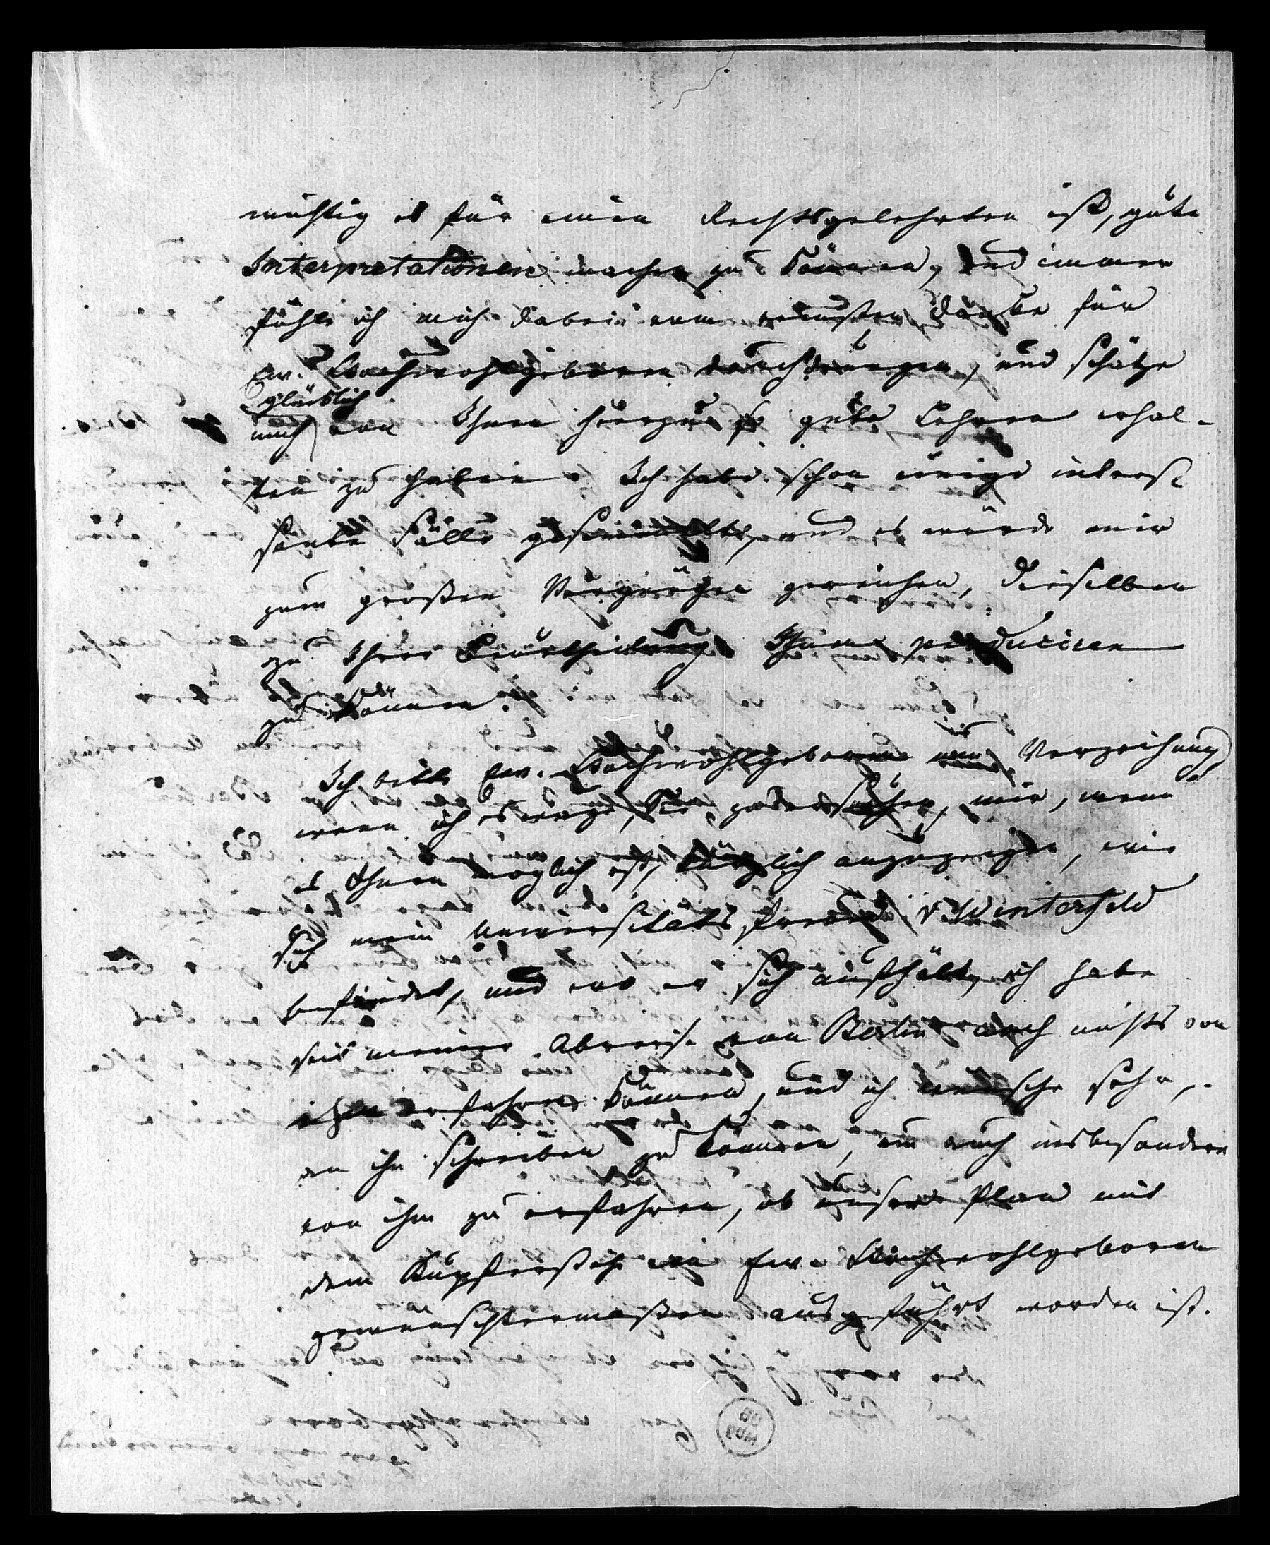 wichtig es für einen Rechtsgelehrten ist, gute
Interpretationen machen zu können, und immer
fühle ich mich dabei vom Danke für
Ew. Hochwohlgeboren durchdrungen, und schätze
mich glücklich von Ihnen hierzu so gute Lehren erhal-
ten zu haben. Ich habe schon einige interes-
sante Fälle gesammelt, und es würde mir
zum großen Vergnügen gereichen, dieselben
zu Ihrer Beurtheilung Ihnen produciren
zu können.
Ich bitte Ew. Hochwohlgeboren um Verzeihung,
wenn ich es wage, Sie zu ersuchen, mir, wenn
es Ihnen möglich ist, kürzlich anzuzeigen, wie
sich mein Universitäts freund v. Winterfeld
befindet, und wo er sich aufhält, ich habe
seit meiner Abreise von Berlin noch nichts von
ihm erfahren können, und ich wünsche sehr,
an ihn schreiben zu können, um auch insbesondere
von ihm zu erfahren, ob unser Plan mit
dem Kupferstich von Ew. Hochwohlgeboren
gewünschtermaßen ausgeführt worden ist.